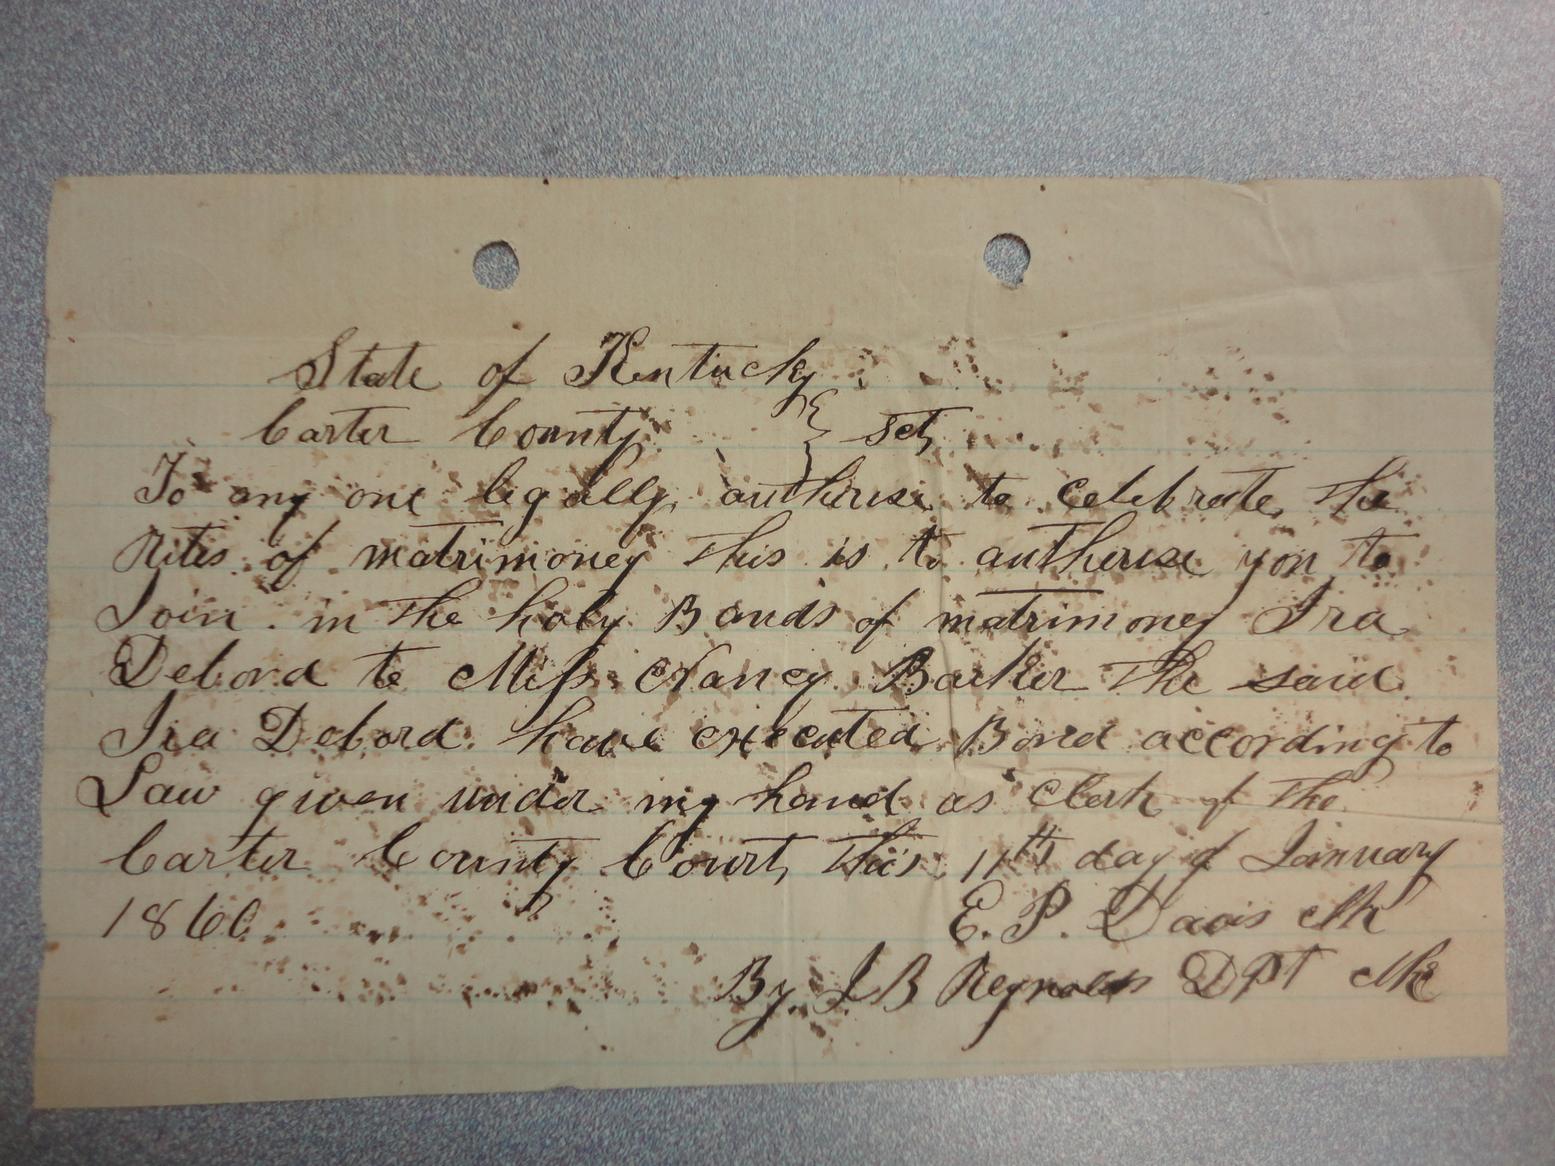 State of Kentucky
Carter County } Sct,
To any one legally, autherise to celebrate, the
Rites of matrimoney This is to autherise you to
Join in the holy Bands of matrimoney Ira
Debord to Miss Nancy Barker The said
Ira Debord have executed Bond according to
Law given under my hand as Clerk of The
Carter County Court, this 11th day of January
1866 E. P. Davis Clk
By J. B Reynolds DPT Clk